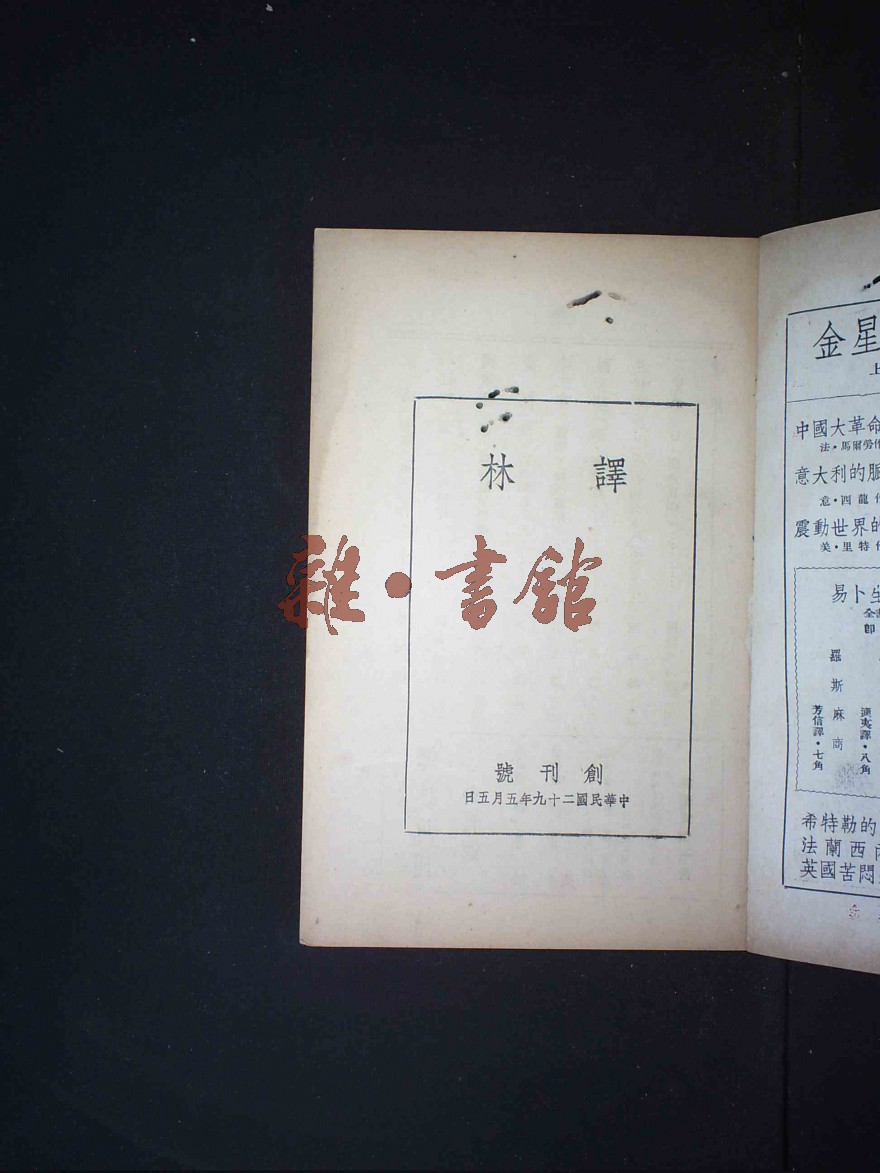 譯林
雜・書館
創刊號
中華民國二十九年五月五日
金星
上
中國大革命
法・馬爾勞作
意大利的
意・西龍作
震動世界的
美・里特作
易卜生
全
即
羅斯麻商
芳信譯・七角
夷譯・八角
希特勒的
法蘭西
英國苦悶